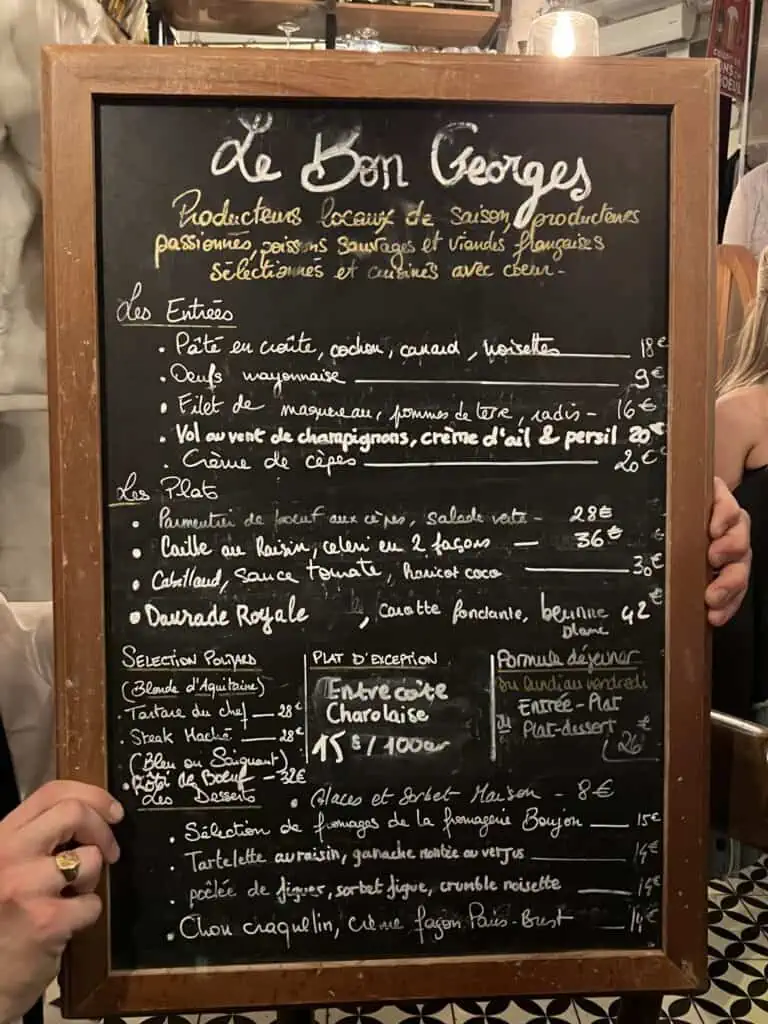 Le Bon Georges
Producteurs locaux de saison, producteurs
passionnés, poissons sauvages et viandes françaises
sélectionnés et cuisinés avec coeur -
Les Entrées
• Pâté en croûte, cochon, canard, noisettes 18€
• Oeufs mayonnaise 9€
• Filet de maquereau, pommes de terre, radis - 16€
• Vol au vent de champignons, crème d'ail & persil 20€
• Crème de cèpes 20€
Les Plats
• Parmentier de boeuf aux cèpes, salade verte - 28€
• Caille au Raisin, celeri en 2 façons - 36€
• Cabillaud, sauce tomate, haricot coco 30€
• Daurade Royale , carotte fondante, beurre blanc 42€
SELECTION POLMARD
(Blonde d'Aquitaine)
• Tartare du chef - 28€
• Steak Haché - 28€
(Bleu ou Saignant)
• Rôti de Boeuf - 32€
PLAT D'EXCEPTION
Entrecôte
Charolaise
15€/100gr
Formule déjeuner
du lundi au vendredi
Entrée - Plat
ou Plat-dessert
26€
Les Desserts
• Glaces et Sorbet Maison - 8€
• Sélection de fromages de la fromagerie Boujon 15€
• Tartelette au raisin, ganache montée au verjus 14€
• poêlée de figues, sorbet figue, crumble noisette 14€
• Chou craquelin, crème façon Paris-Brest 14€